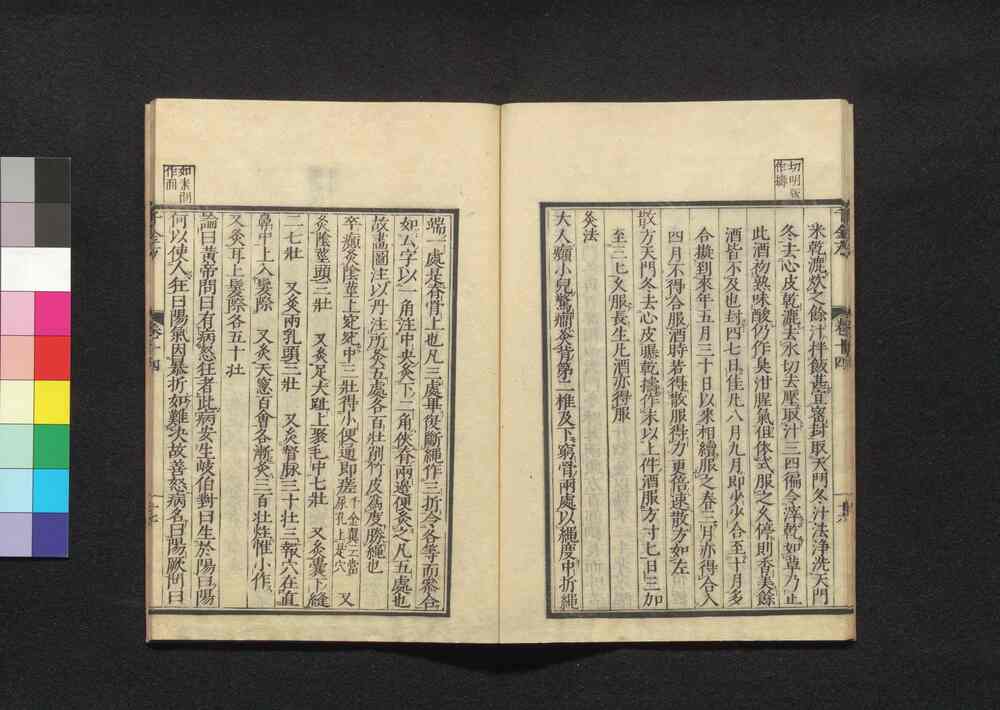 切明版
作擣
米乾漉炊之餘汁拌飯甚宜密封取天門冬汁法淨洗天門
冬去心皮乾漉去水切去壓取汁三四徧令滓乾如草乃止
此酒初熟味酸仍作臭泔腥氣但依式服之久停則香美餘
酒皆不及也封四七日佳凡八月九月即少少合至十月多
合擬到來年五月三十日以來相續服之春三月亦得合入
四月不得合服酒時若得散服得力更倍速散方如左
散方天門冬去心皮曝乾擣作末以上件酒服方寸七日三加
至三七久服長生凡酒亦得服
灸法
大人癲小兒驚癎灸背第二椎及下窮骨兩處以繩度中折繩
端一處是脊骨上也凡三處畢復斷繩作三折令各等而參合
如厶字以一角注中央灸下二角俠脊兩邊便灸之凡五處也
故畫圖注以丹注所灸五處各百壯削竹皮爲度勝繩也
卒癲灸陰莖上宛宛中三壯得小便通即瘥千金翼云當
尿孔上是穴又
灸陰莖頭三壯 又灸足大趾上聚毛中七壯 又灸囊下縫
二七壯 又灸兩乳頭三壯 又灸督脉三十壯三報穴在直
鼻中上入髮際 又灸天窻百會各漸灸三百壯炷惟小作
又灸耳上髮際各五十壯
論曰黃帝問曰有病怒狂者此病安生岐伯對曰生於陽曰陽
何以使人狂曰陽氣因暴折而難決故善怒病名曰陽厥問曰
如素問
作而
千金方
卷十四